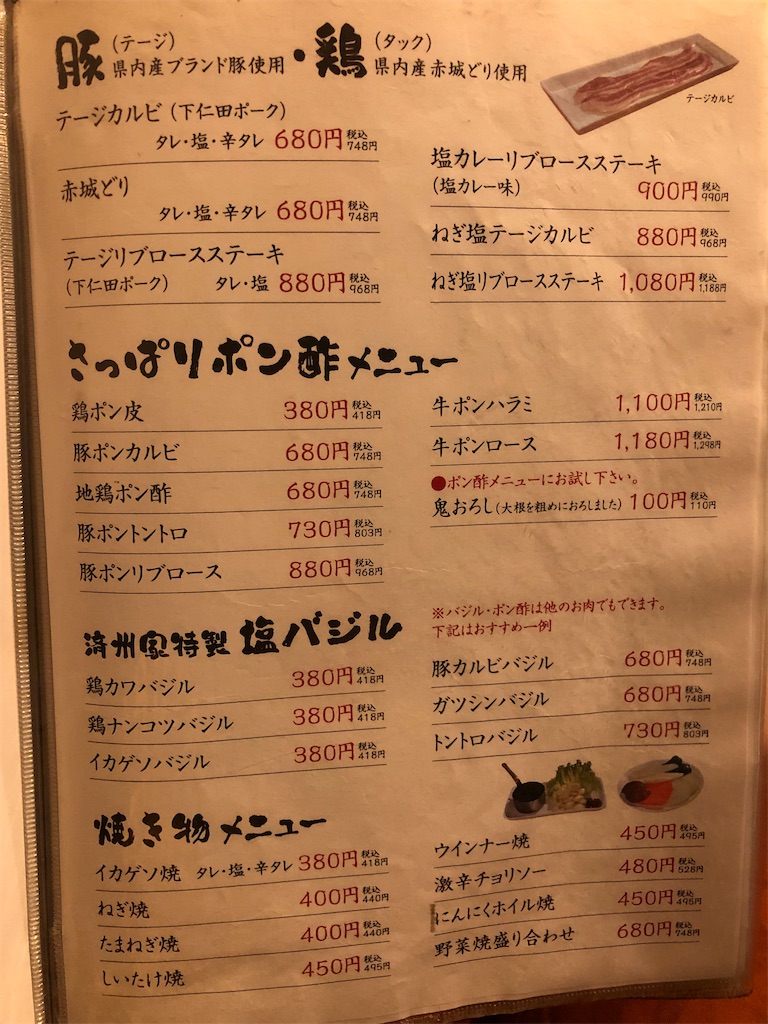 豚(テージ)県内産ブランド豚使用・鶏(タック)県内産赤城どり使用
テージカルビ
テージカルビ(下仁田ポーク)
タレ・塩・辛タレ 680円 税込748円
赤城どり
タレ・塩・辛タレ 680円 税込748円
テージリブロースステーキ
(下仁田ポーク) タレ・塩 880円 税込968円
塩カレーリブロースステーキ
(塩カレー味) 900円 税込990円
ねぎ塩テージカルビ 880円 税込968円
ねぎ塩リブロースステーキ 1,080円 税込1,188円
さっぱりポン酢メニュー
鶏ポン皮 380円 税込418円
豚ポンカルビ 680円 税込748円
地鶏ポン酢 680円 税込748円
豚ポントントロ 730円 税込803円
豚ポンリブロース 880円 税込968円
牛ポンハラミ 1,100円 税込1,210円
牛ポンロース 1,180円 税込1,298円
●ポン酢メニューにお試し下さい。
鬼おろし(大根を粗めにおろしました) 100円 税込110円
済州家特製 塩バジル
鶏カワバジル 380円 税込418円
鶏ナンコツバジル 380円 税込418円
イカゲソバジル 380円 税込418円
※バジル・ポン酢は他のお肉でもできます。
下記はおすすめ一例
豚カルビバジル 680円 税込748円
ガツシンバジル 680円 税込748円
トントロバジル 730円 税込803円
焼き物メニュー
イカゲソ焼 タレ・塩・辛タレ 380円 税込418円
ねぎ焼 400円 税込440円
たまねぎ焼 400円 税込440円
しいたけ焼 450円 税込495円
ウインナー焼 450円 税込495円
激辛チョリソー 480円 税込528円
にんにくホイル焼 450円 税込495円
野菜焼盛り合わせ 680円 税込748円